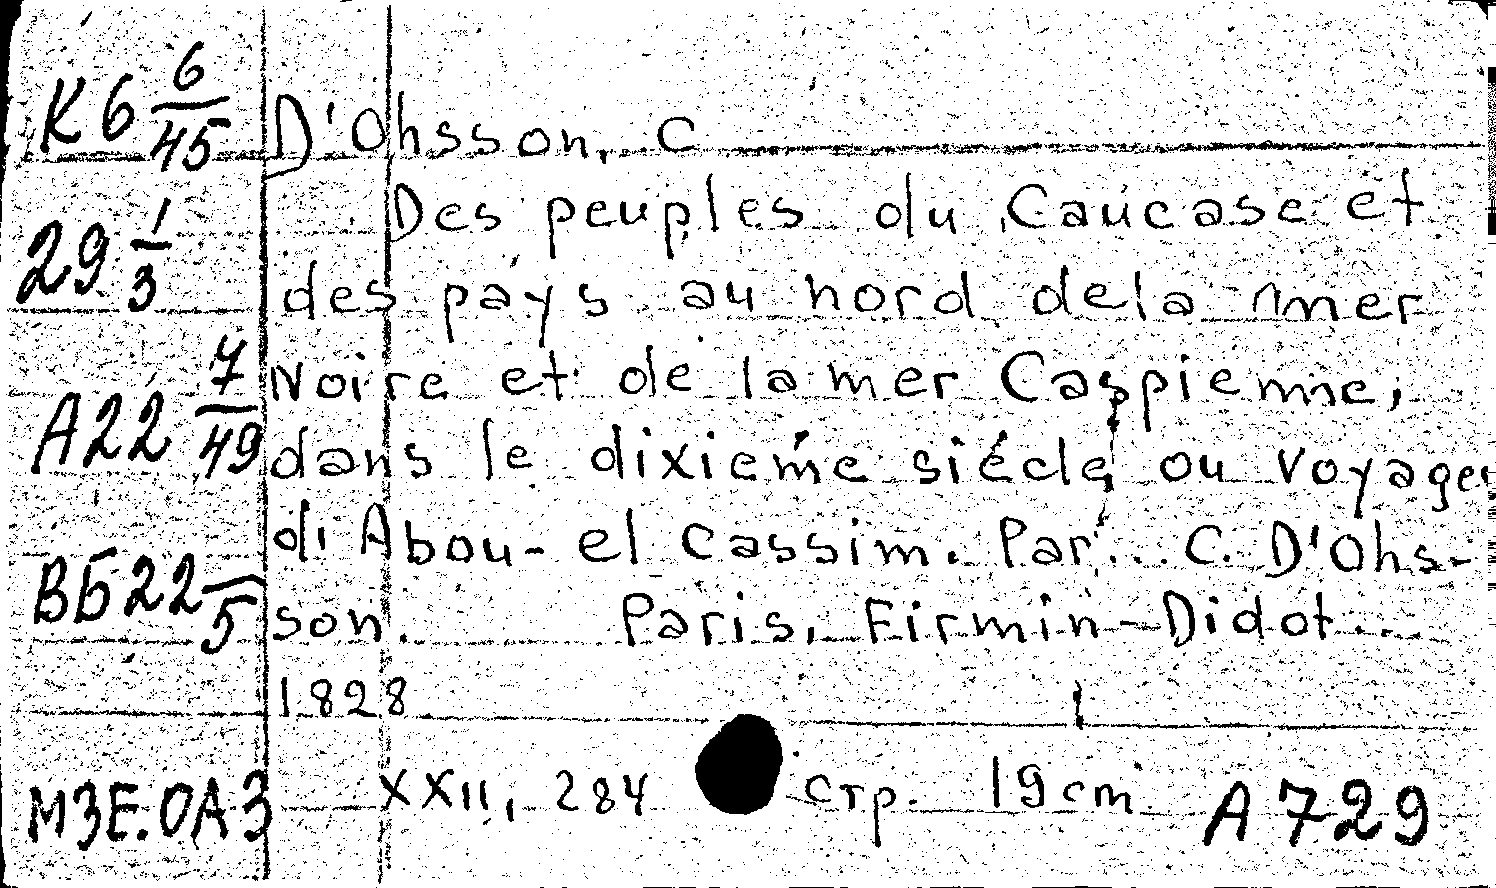 К6 6/45
D'Ohsson, C
29 1/3
Des peuples du Caucase et
des pays au nord dela mer
A22 7/49
Noire et de la mer Caspienne,
dans le dixieme siécle, ou voyage
d'Abou-el Cassim. Par... C. D'Ohs-
ВБ22 –/5
son. Paris, Firmin-Didot...
1828
МЗЕ.ОАЗ
XXII, 284 стр. 19cm
A729